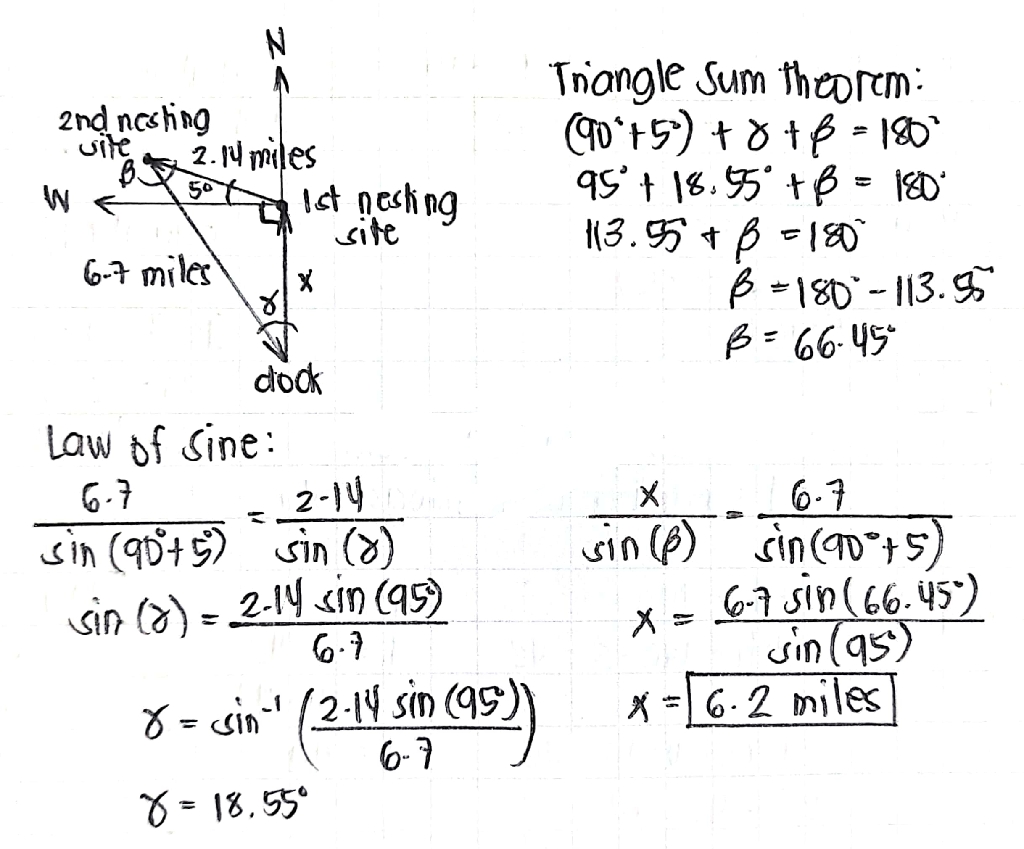 N
2nd nesting
site
2.14 miles
β
5°
W
1st nesting
site
6.7 miles
x
γ
dock
Triangle Sum Theorem:
(90°+5°) + γ + β = 180°
95° + 18.55° + β = 180°
113.55 + β = 180°
β = 180° - 113.55°
β = 66.45°
Law of Sine:
6.7 / sin (90°+5°) = 2.14 / sin (γ)
sin (γ) = 2.14 sin (95°) / 6.7
γ = sin⁻¹ (2.14 sin (95°) / 6.7)
γ = 18.55°
x / sin (β) = 6.7 / sin(90°+5)
x = 6.7 sin(66.45°) / sin(95°)
x = 6.2 miles